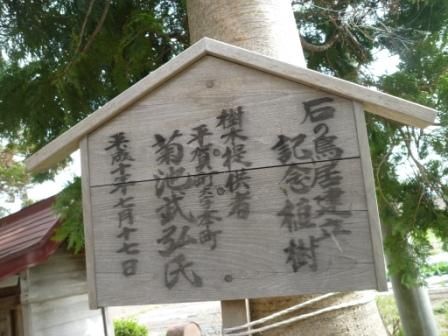 石の鳥居建立
記念植樹
樹木提供者
平賀町大字本町
菊池武弘氏
平成十年七月十七日